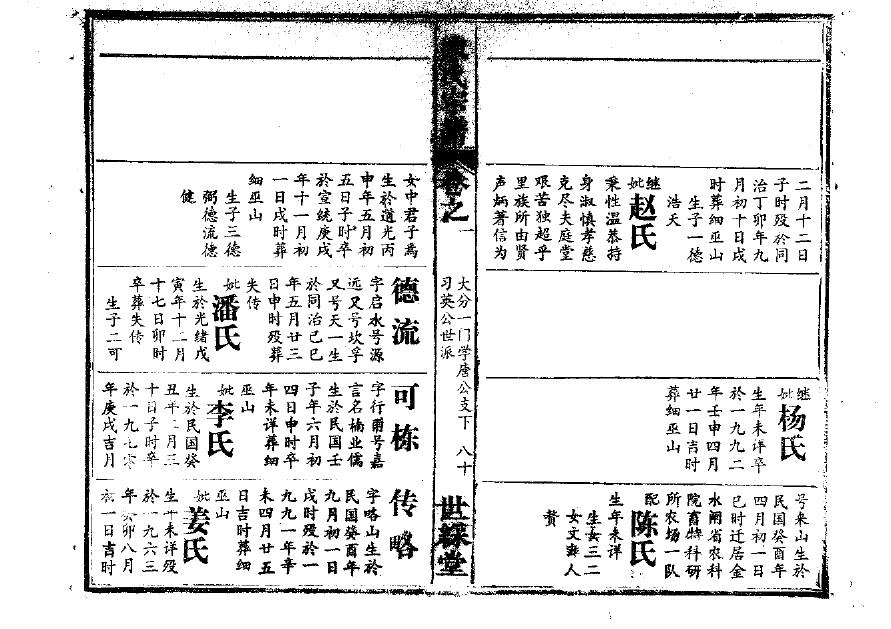 二月十二日
子时殁於同
治丁卯年九
月初十日戌
时葬细巫山
生子一德
浩天
继
妣
赵氏
秉性温恭持
身淑慎孝慈
克尽夫庭堂
艰苦独超乎
里族所由贤
声炳著信为
继
妣
杨氏
生年未详卒
於一九九二
年壬申四月
廿一日吉时
葬细巫山
号来山生於
民国癸酉年
四月初一日
巳时迁居金
水闸省农科
院畜特科研
所农场一队
配
陈氏
生年未详
生女三二
女文爽人
赘
卷之一
大分一门学唐公支下
八十
习英公世派
世綵堂
女中君子焉
生於道光丙
申年五月初
五日子时卒
於宣统庚戌
年十一月初
一日戌时葬
细巫山
生子三德
弼德流德
健
德流
字启水号源
远又号坎孚
又号天一生
於同治己巳
年五月廿三
日申时殁葬
失传
妣
潘氏
生於光绪戊
寅年十二月
十七日卯时
卒葬失传
生子二可
可栋
字行甫号嘉
言名楠业儒
生於民国壬
子年六月初
四日申时卒
年未详葬细
巫山
妣
李氏
生於民国癸
丑年二月三
十日子时卒
於一九七
年庚戌吉月
传略
字略山生於
民国癸酉年
九月初一日
戌时殁於一
九九一年辛
未四月廿五
日吉时葬细
巫山
妣
姜氏
生年未详殁
於一九六三
年癸卯八月
初一日吉时